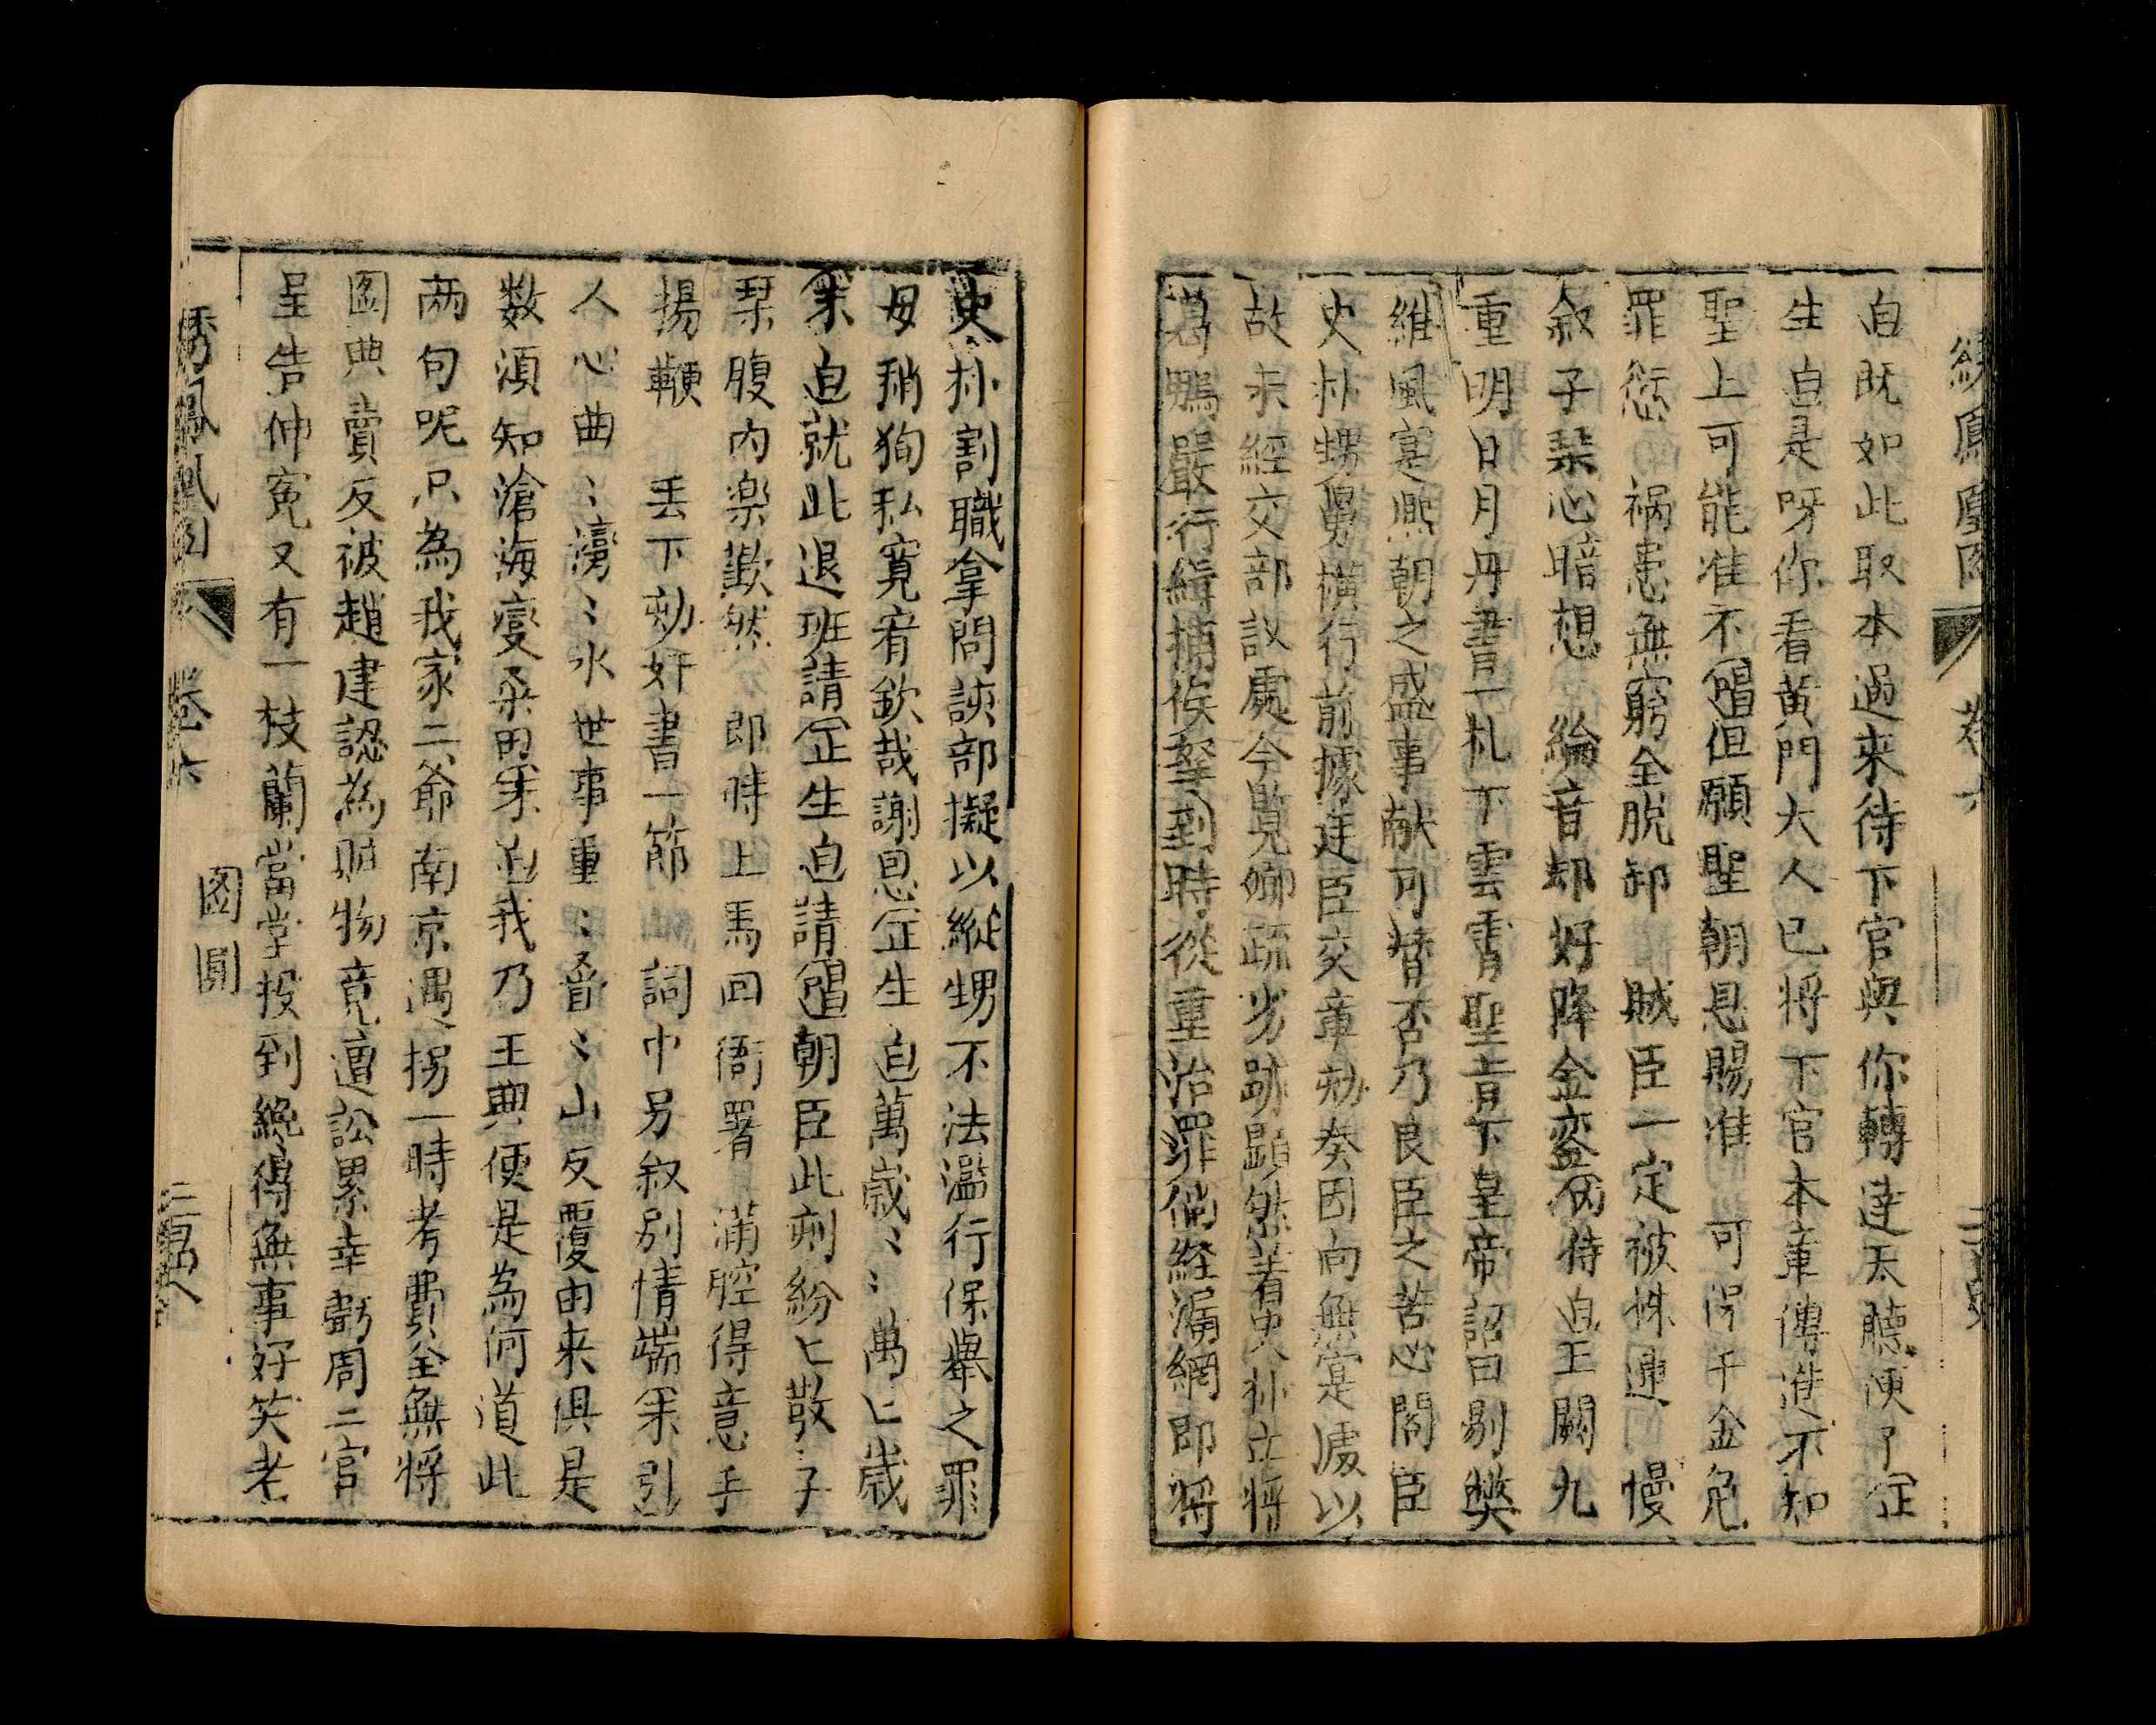 繡鳳凰圖 卷六
白既如此取本過来待下官與你轉達天聽便了正
生白是呀你看黄門大人已将下官本章傳進不知
聖上可能准不唱但願聖朝恩賜准 可保千金免
罪愆 禍患無窮全脱卸 賊臣一定被株連 慢
叙子琹心暗想 綸音却好降金鑾内侍白玉闕九
重明日月丹書一札下雲霄聖旨下皇帝詔曰剔獘
維風寔熙朝之盛事献可替否乃良臣之苦心閣臣
史朴甥舅横行前據廷臣交章劾奏因向無寔處以
故未經交部議處今覧卿疏劣跡顯然着史朴立将
葛鵬嚴行緝捕俟拏到時從重治罪倘經漏網即将
史朴割職拿問諌部擬以縱甥不法濫行保舉之罪
毋稍狥私寬宥欽哉謝恩正生白萬歲〻〻萬匕歲
末白就此退班請正生白請唱朝臣此刻紛匕散 子
琹腹内楽歡然 即時上馬回衙署 滿腔得意手
揚鞭 丢下劾奸書一節 詞中另叙别情端末引
人心曲〻灣〻水世事重〻叠〻山反覆由来俱是
数須知滄海變桑田末白我乃王興便是為何道此
两句呢只為我家二爺南京遇拐一時考費全無将
圖典賣反被趙建認為賍物竟遭訟累幸虧周二官
呈告伸寃又有一枝蘭當堂投到纔得無事好笑老
繡鳳凰圖 卷六 團圓